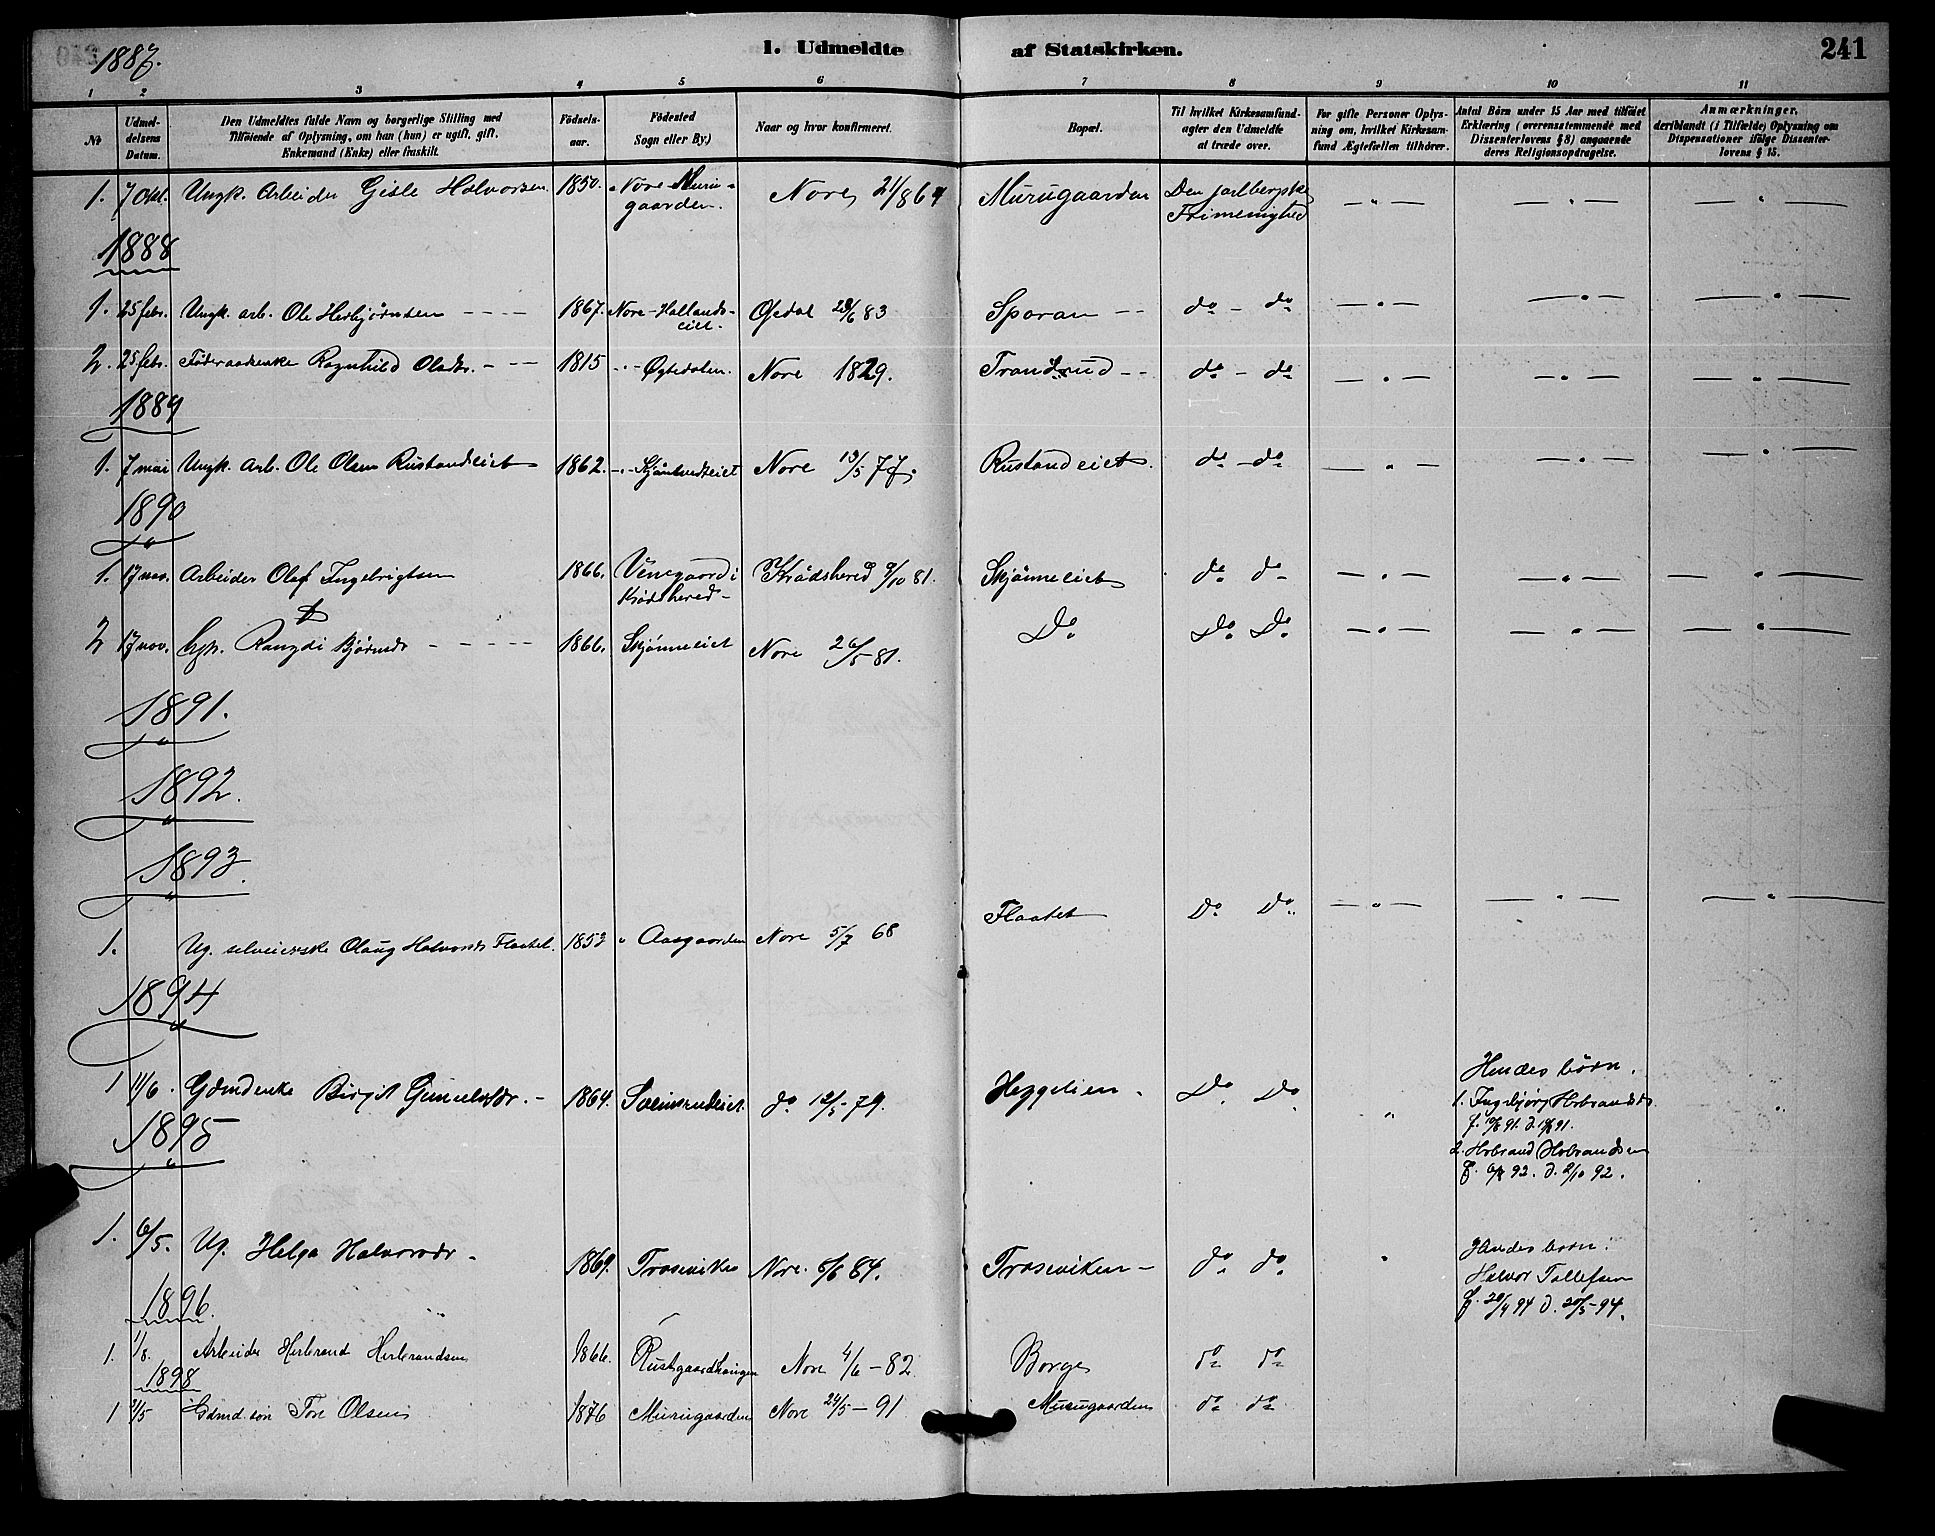 1887.
1. Udmeldte af Statskirken.
241
1 2 3 4 5 6 7 8 9 10 11
№
Udmeldelsens Datum.
Den Udmeldtes fulde Navn og borgerlige Stilling med
Tilföiende af Oplysning, om han (hun) er ugift, gift,
Enkemand (Enke) eller fraskilt.
Födselsaar.
Födested
Sogn eller By.)
Naar og hvor konfirmeret.
Bopæl.
Til hvilket Kirkesamfund
agter den Udmeldte
at træde over.
For gifte Personer Oplysning om, hvilket Kirkesamfund Ægtefællen tilhörer.
Antal Börn under 15 Aar med tilföiet
Erklæring (overensstemmende med
Dissenterlovens § 8) angaaende
deres Religionsopdragelse.
Anmærkninger,
deriblandt (i Tilfælde) Oplysning om
Dispensationer ifölge Dissenterlovens § 15.
1. 7 Okt. Ungk. Arbeider Gisle Halvorsen 1850. Nore Murugaarden. Nore 21/8 64 Murugaarden Den jarlbergske Frimenighed — " — — " — — " —
1888
1. 25 febr. Ungk. arb. Ole Herbjørnsen - - - - 1867. Nore - Hallandseiet. Opdal 28/6 83 Sporan - - do - do — " — — " — — " —
2. 25 febr. Føderaadsenke Ragnhild Olsdtr. - - - 1815 - " - Øgtedalen. Nore 1829. Trandrud - - do - do — " — — " — — " —
1889
1. 7 mai Ungk. arb. Ole Olsen Rustandeiet 1862. - " - Nore 13/5 77. Rustandeiet. do - do — " — — " — — " —
1890
1. 17 nov. Arbeider Olaf Ingebrigtsen 1866. Venegaard i Krødshered - Krødshered 9/10 81. Skjønneeiet do do — " — — " — — " —
2 17 nov. Rangdi Bjørnsdr - - - - 1866. Skjønneeiet Nore 26/5 81. Do Do Do — " — — " — — " —
1891.
1892.
1893.
1. Ug. selveierske Olaug Halvorsdr Flaatet. 1853 " Aasgaarden Nore 5/7 68 Flaatet Do Do — " — — " — — " —
1894
1 11/6. Gdmdenke Birgit Gunulvsdr. - 1864. Sveinsrudeiet. do 12/5 - 79. Heggelien - Do Do " Hendes børn.
1. Ingebjørg Hebrandsdr.
2. Hebrand Hebrandsen
1895
1. 6/5. Ug. Helga Halvorsdr - 1869. Trosviken Nore. 6/6 84. Trosviken - do do " Hendes barn:
Halvor Tollefsen
f. 20/4 94 d. 20/5 - 94.
1896.
1. 1/8. Arbeider Herbrand Herbrandsen 1866. Rustgaardhaugen Nore 4/6 - 82 Borge do do
1898
1 2/5 Gdmd.søn Tore Olsen 1876 Murugaarden Nore 24/5 - 91 Murugaarden do do